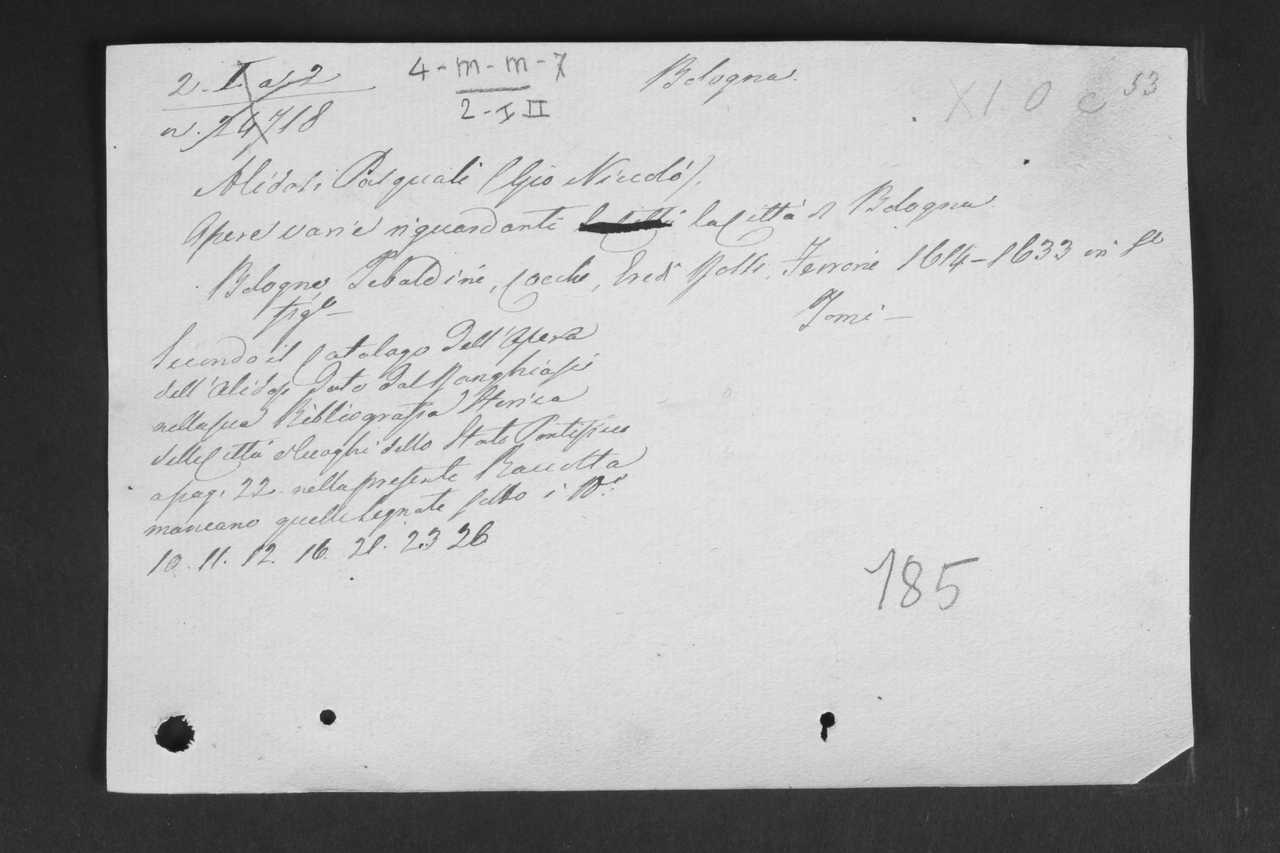 2. I. a. 2
n. 24718
4-m-m-7
2-I II
Bologna.
XI. 0 C 53
Alidosi Pasquali (Gio Niccolò).
Opere varie riguardanti la Città di Bologna
Bologna, Tebaldini, Cocchi, Eredi Rossi, Ferroni 1614-1633 in 4°
fig.e
Tomi —
Secondo il Catalogo dell'Opera
dell'Alidosi dato dal Ranghiasi
nella sua Bibliografia Storica
delle Città e luoghi dello Stato Pontificio
a pag: 22 nella presente Raccolta
mancano quelle segnate sotto i N.i
10. 11. 12. 16. 21. 23 26
185